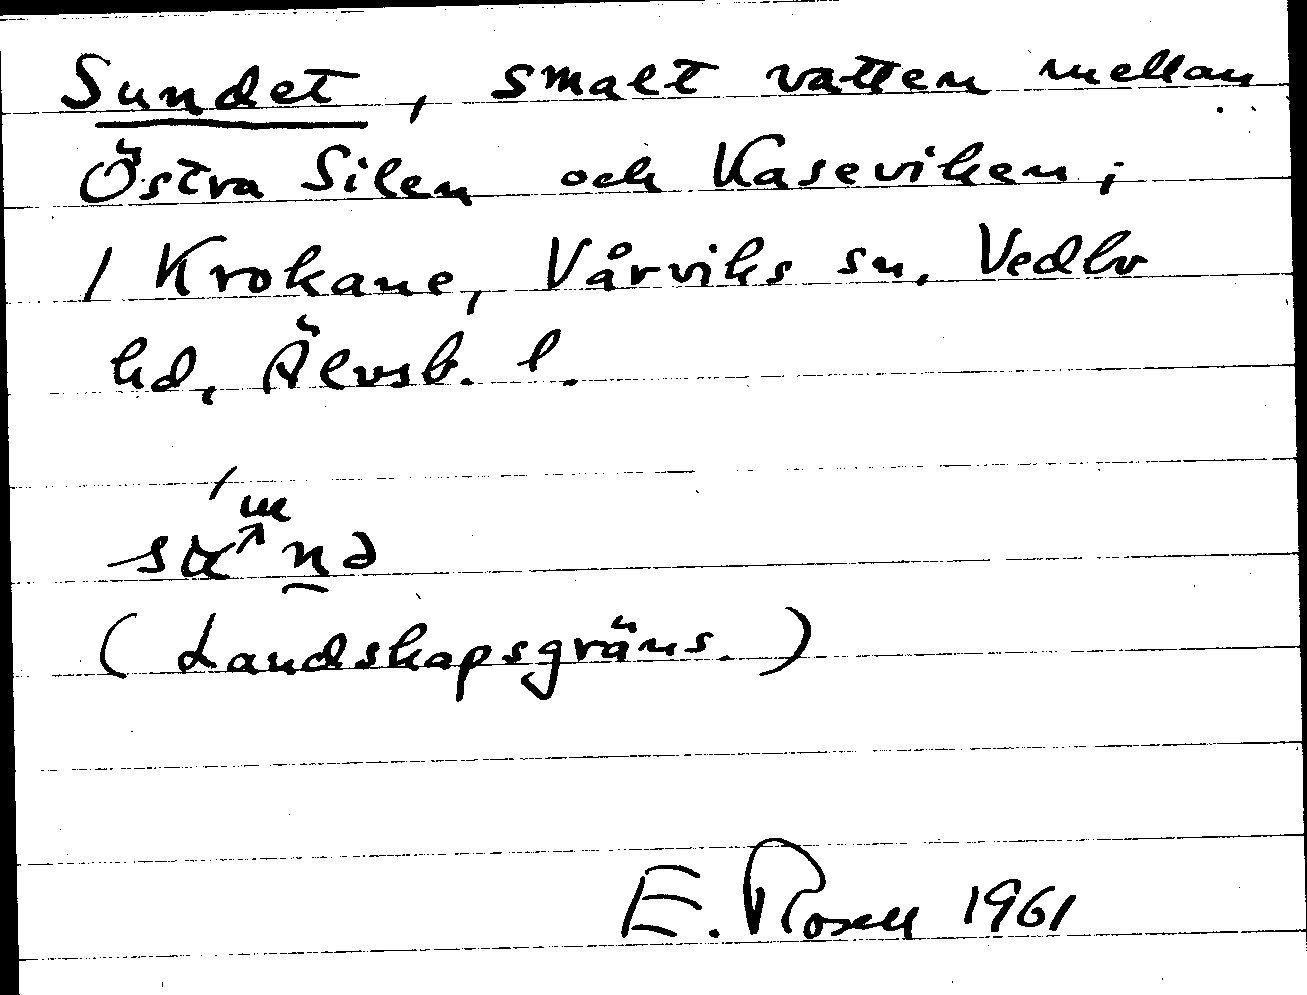 Sundet, smalt vatten mellan
Östra Silen och Kaseviken;
/ Krokane, Vårviks sn, Vedbo
hd, Älvsb. l.
(Landskapsgräns.)
E. Rosell 1961